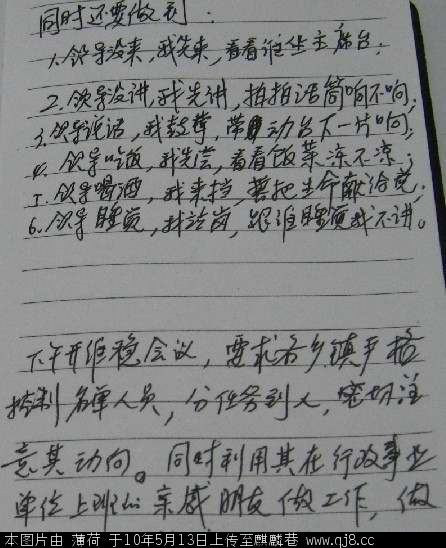 同时还要做到：
1.领导没来，我先来，看看谁坐主席台；
2.领导没讲，我先讲，拍拍话筒响不响；
3.领导说话，我鼓掌，带动台下一片响；
4.领导吃饭，我先尝，看看饭菜凉不凉；
5.领导喝酒，我来挡，要把生命献给党。
6.领导睡觉，我站岗，跟谁睡觉我不讲。
下午开维稳会议，要求各乡镇严格
控制名单人员，分任务到人，密切注
意其动向。同时利用其在行政事业
单位上班的亲戚朋友做工作，做
本图片由 薄荷 于10年5月13日上传至麒麟巷 www.qj8.cc